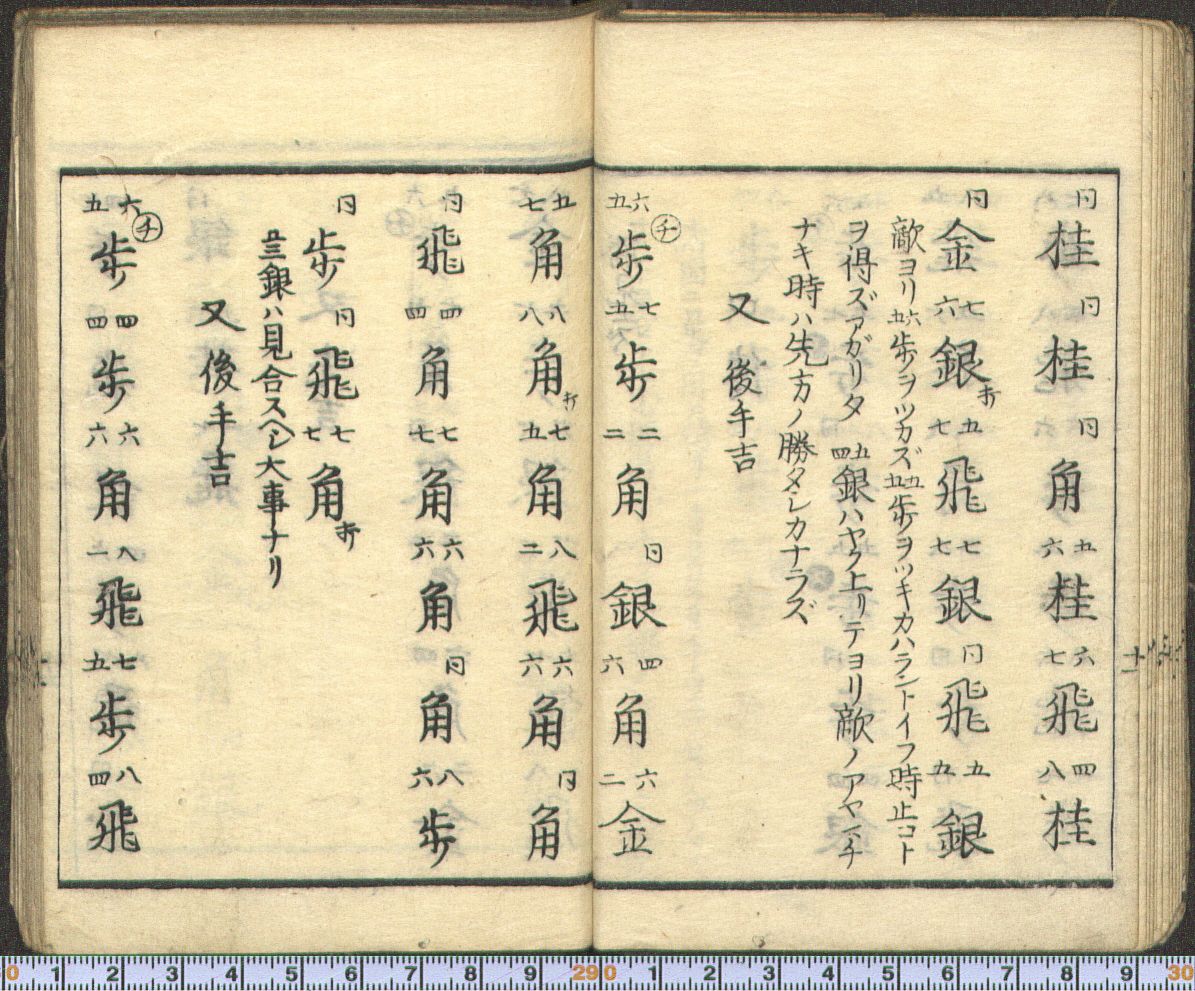 同桂 同桂 同角 五六桂 六七飛 四八桂
同金 七六銀打 五七飛 七七銀 同飛 五五銀
敵ヨリ六五歩ヲツカズ五五歩ヲツキカハラントイフ時止コト
ヲ得ズアガリタ 五四銀ハヤク上リテヨリ敵ノアヤマチ
ナキ時ハ先方ノ勝タシカナラズ
又 後手吉
六五チ歩 七五歩 二二角 同銀 四六角 六二金
五七角 八八角打 七五角 八二飛 六六角 同角
同飛 四四角 七七角 六六角 同角 八六歩
同歩 同飛 七七角打
五三銀ハ見合スヘシ大事ナリ
又 後手吉
六五チ歩 四四歩 六六角 八二飛 七五歩 八四飛
十一
0 1 2 3 4 5 6 7 8 9 29 0 1 2 3 4 5 6 7 8 9 30